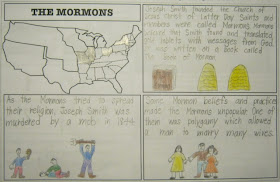 THE MORMONS
Joseph Smith founded the Church of
Jesus Christ of Latter Day Saints and
members were called Mormons. Mormons
believed that Smith found and translated
tablets with messages from God
was written on a book called
The Book of Mormon.
As the Mormons tried to spread
their religion, Joseph Smith was
murdered by a mob in 1844.
Some Mormon beliefs and practice
made the Mormons unpopular. One of
them was polygamy which allowed
a man to marry many wives.